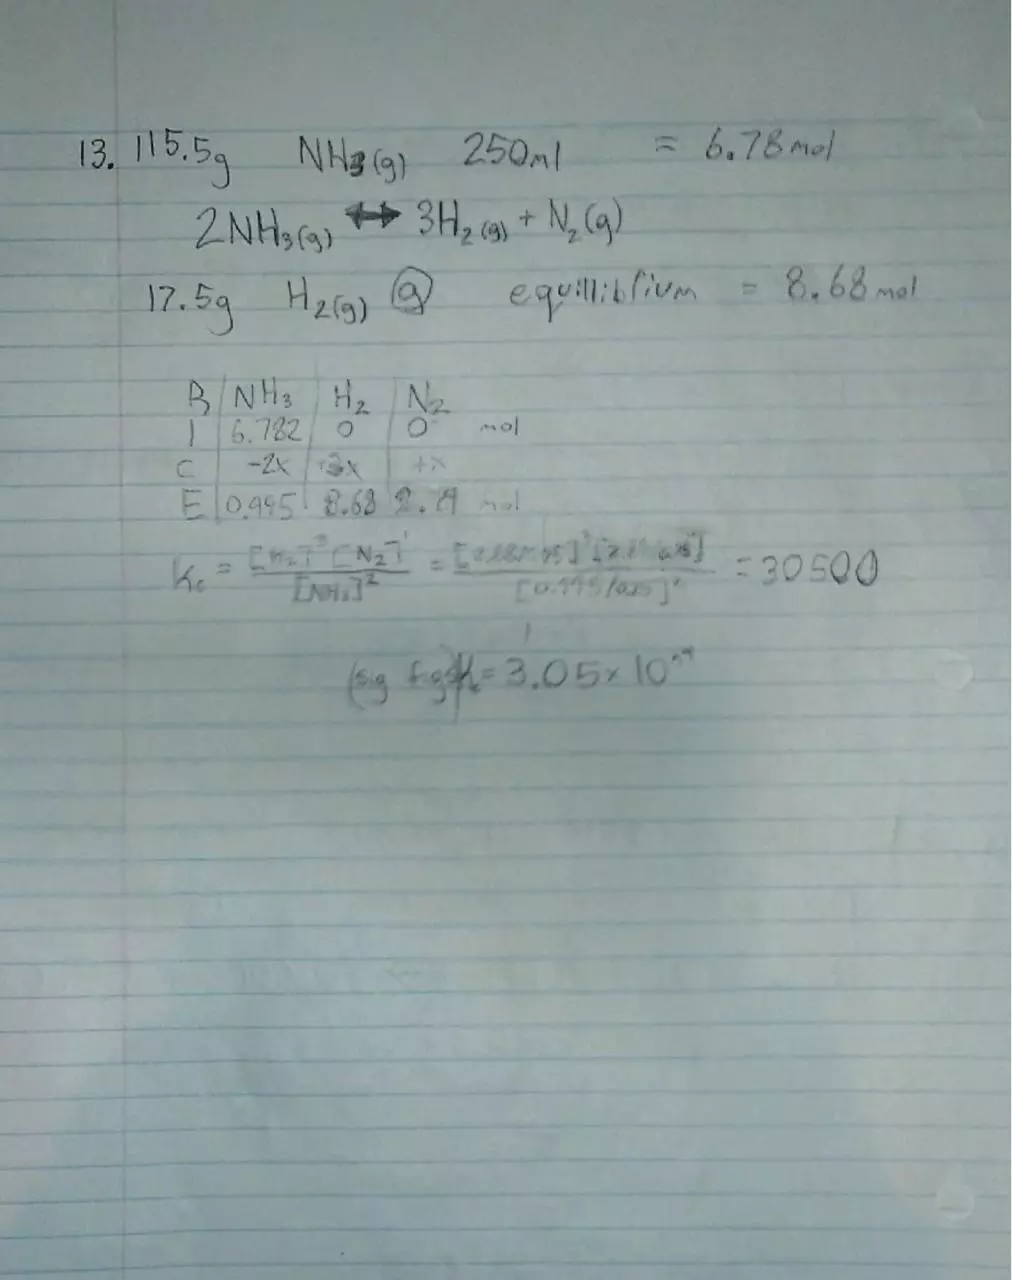 13. 115.5g NH3(g) 250ml = 6.78 mol
2NH3(g) ↔ 3H2(g) + N2(g)
17.5g H2(g) @ equillibrium = 8.68 mol
R NH3 H2 N2
I 6.782 0 0 mol
C -2x +3x +x
E 0.995 8.68 2.89 mol
Kc = [H2]³ [N2]¹ / [NH3]² = = 30500
(sig figs) = 3.05 x 10